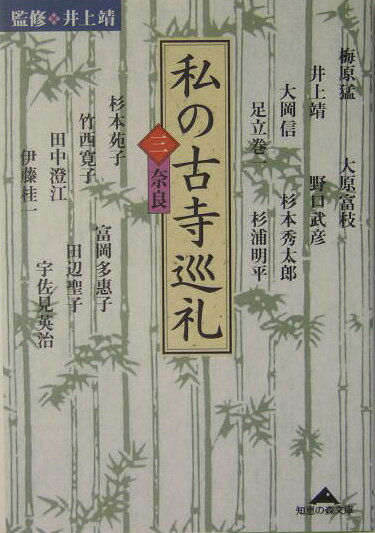 監修❖井上靖
私の古寺巡礼
三
奈良
梅原猛
大原富枝
井上靖
野口武彦
大岡信
杉本秀太郎
足立巻一
杉浦明平
杉本苑子
富岡多惠子
竹西寛子
田辺聖子
田中澄江
宇佐見英治
伊藤桂一
知恵の森文庫